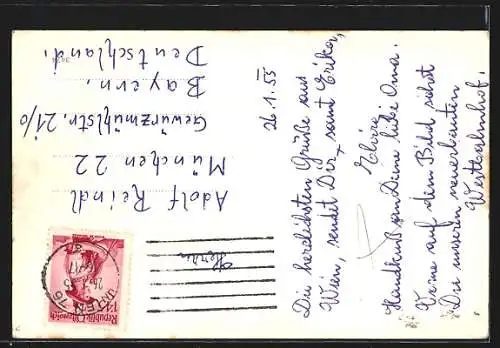 26.1.55
Die herzlichsten Grüße aus
Wien, sendet Dir, samt Erika,
Elvira
Handkuß an Deine liebe Oma.
Vorne auf dem Bild siehst
Du unseren neuerbauten
Westbahnhof.
Herrn
Adolf Reindl
München 22
Gewürzmühlstr. 21/0
Bayern,
Deutschland.
Republik Österreich
WIEN 76